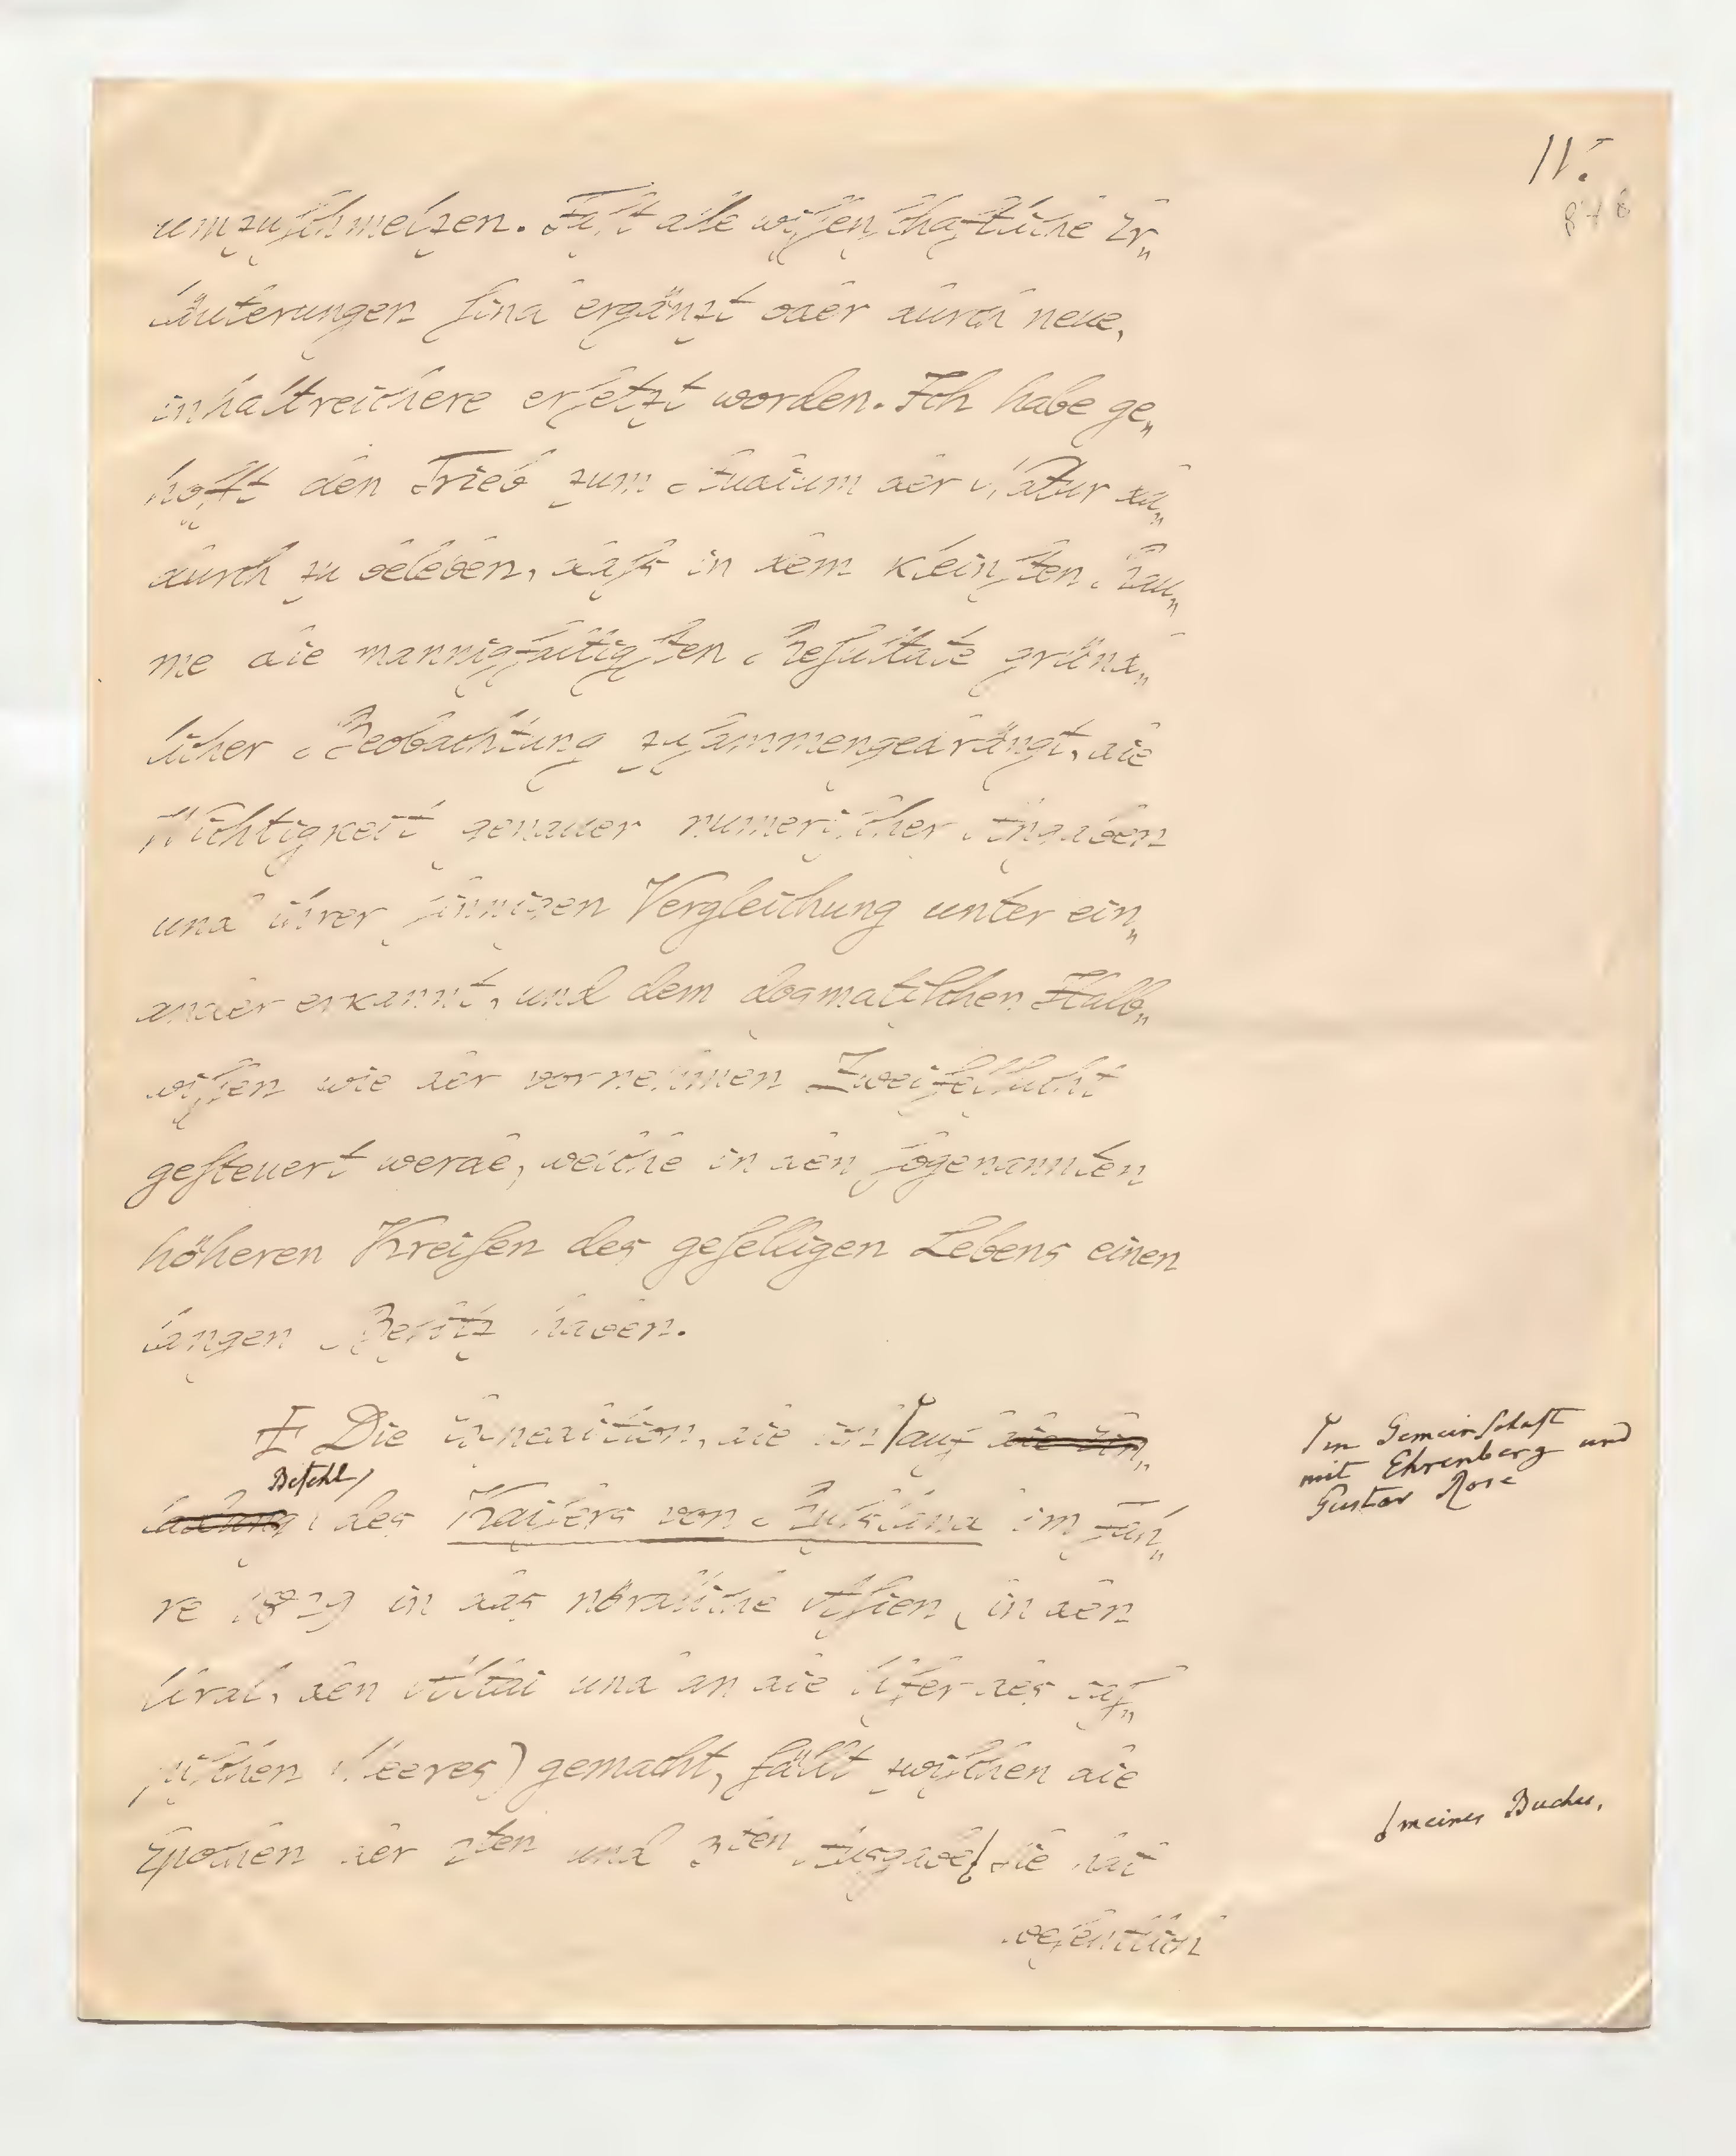 IV.
umzuſchmelzen. Faſt alle wiſſenſchaftliche Er„
läuterungen ſind ergänzt oder durch neue,
inhaltreichere erſetzt worden. Ich habe ge„
hofft den Trieb zum Studium der Natur da„
durch zu beleben, daſs in dem kleinſten Rau„
me die mannigfaltigſten Reſultate gründ„
licher Beobachtung zuſammengedrängt, die
Wichtigkeit genauer numeriſcher Angaben
und ihrer ſinnigen Vergleichung unter ein„
ander erkannt, und dem dogmatiſchen Halb„
wiſſen wie der vornehmen Zweifelſucht
geſteuert werde, welche in den ſogenannten
höheren Kreiſen des geſelligen Lebens einen
langen Beſitz haben.
Die Expedition, die ich auf die Ein„
Befehl
ladung des Kaiſers von Ruſsland im Jah„
re 1829 in das nördliche Aſien (in den
Ural, den Altai und an die Ufer des caſ„
piſchen Meeres) gemacht, fällt zwiſchen die
Epochen der 2ten und 3ten Ausgabe Sie hat
weſentlich
in Gemeinſchaft
mit Ehrenberg und
Guſtav Roſe
meines Buches,